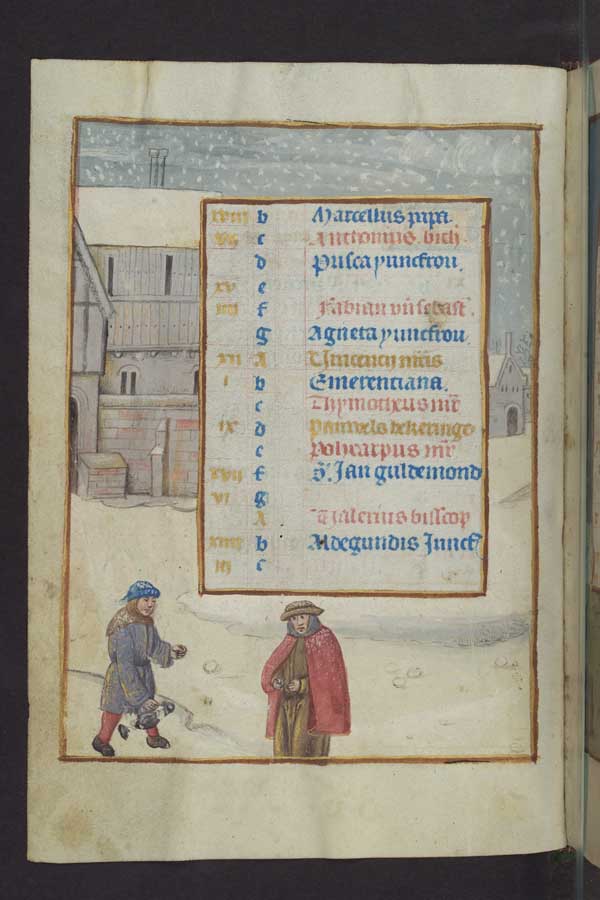 xviii b Marcellus papa.
vii c Anthonius. bich
d Prisca yunckfrou.
xv e
iiii f Fabian vñ sebast
g Agneta yunckfrou
xii A Vincencij mris
i b Emerentiana.
c Thymotheus mr
ix d Pauwels bekeringe
e Policarpus mr
xvii f S. Jan guldemond
vi g
A Valerius bisscop
xiiii b Aldegundis Junck
iij c